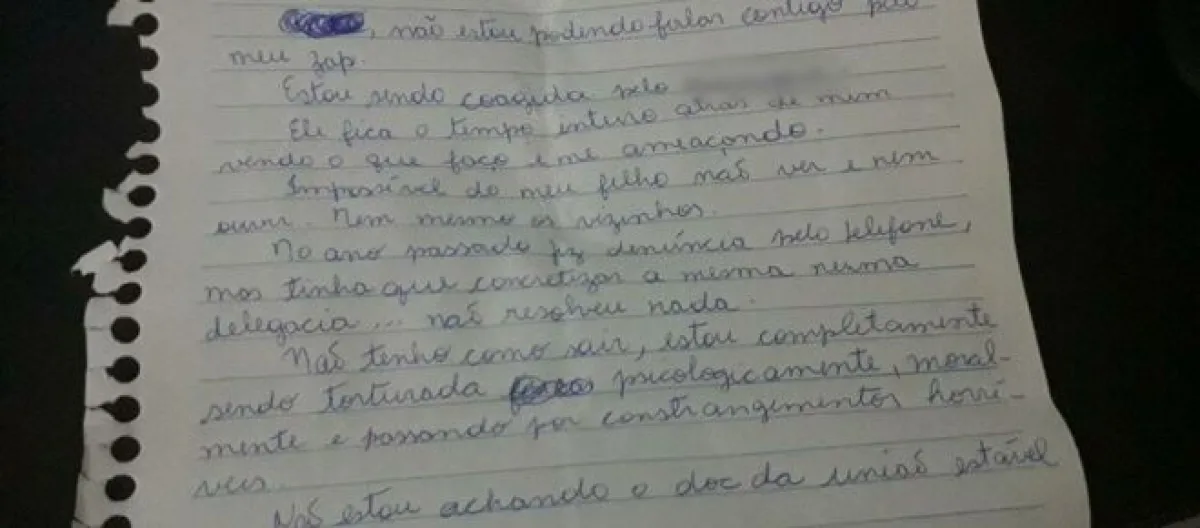 , não estou podendo falar contigo pelo
meu zap.
Estou sendo coagida pelo
Ele fica o tempo inteiro atras de mim
vendo o que faço e me ameaçondo.
Impossível do meu filho não ver e nem
ouvir. Nem mesmo os vizinhos.
No ano passado fiz denúncia pelo telefone,
mas tinha que concretizar a mesma numa
delegacia... não resolveu nada.
Não tenho como sair, estou completamente
sendo torturada psicologicamente, moral-
mente e passando por constrangimentos horrí-
veis.
Não estou achando o doc da união estável